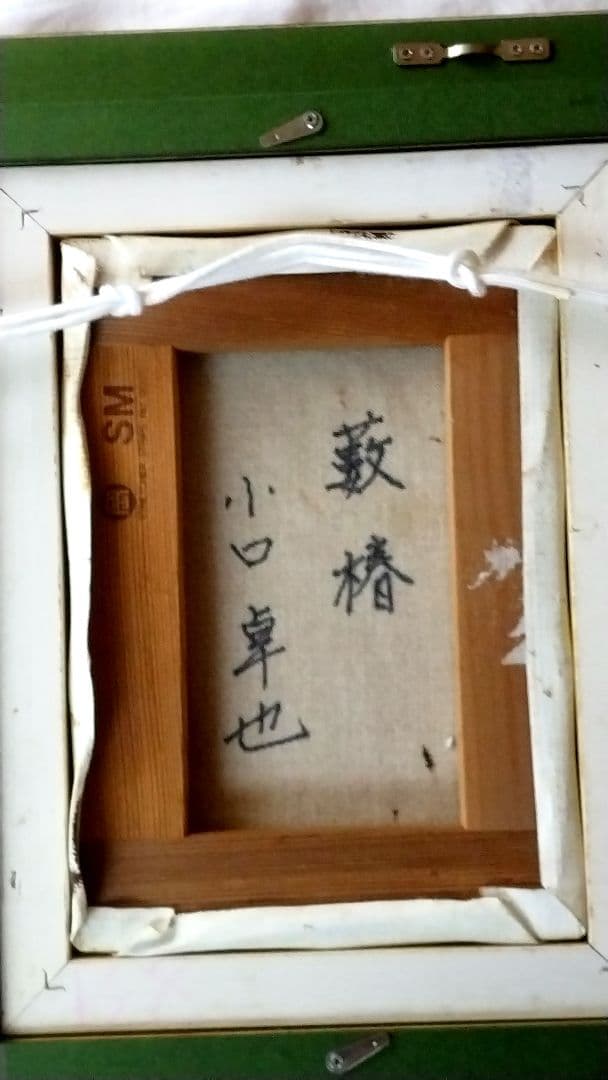 藪椿
小口卓也
SM